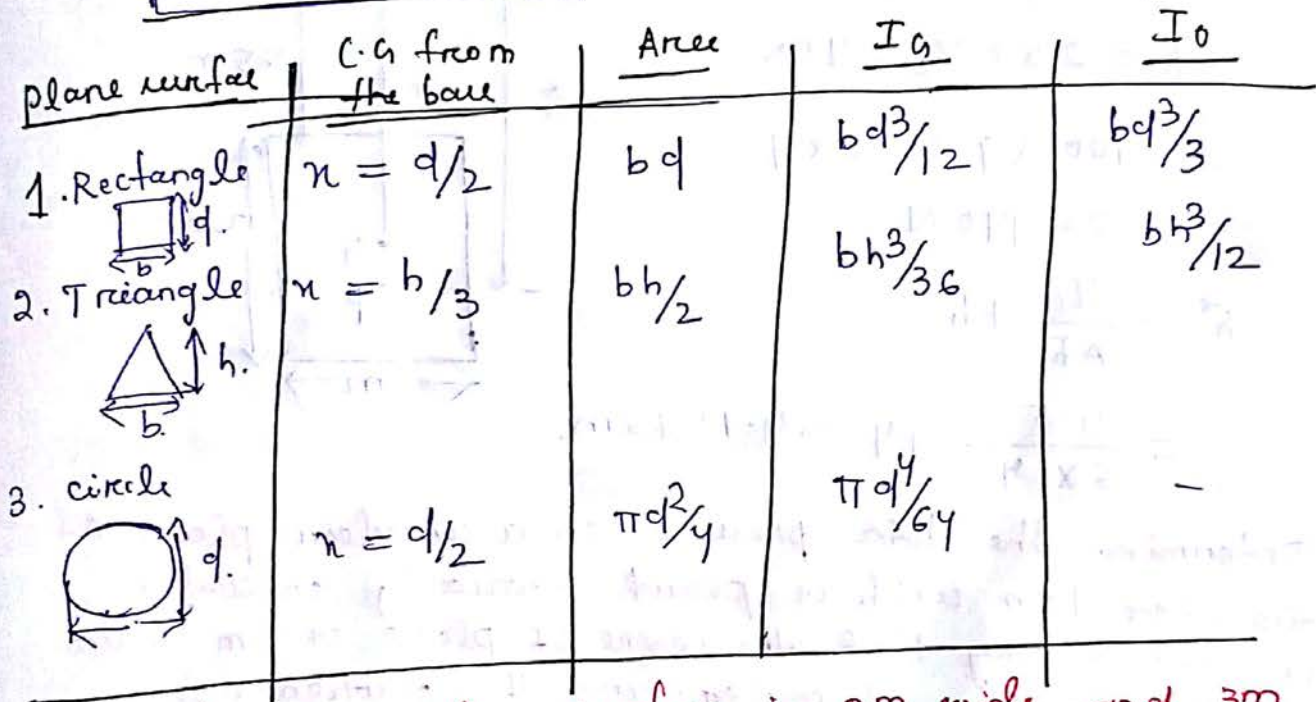 plane surface | C.G from the base | Area | IG | Io
1. Rectangle | x = d/2 | bd | bd³/12 | bd³/3
d.
b
2. Triangle | x = h/3 | bh/2 | bh³/36 | bh³/12
h.
b.
3. circle | x = d/2 | πd²/4 | πd⁴/64 | -
d.
wide and 3m